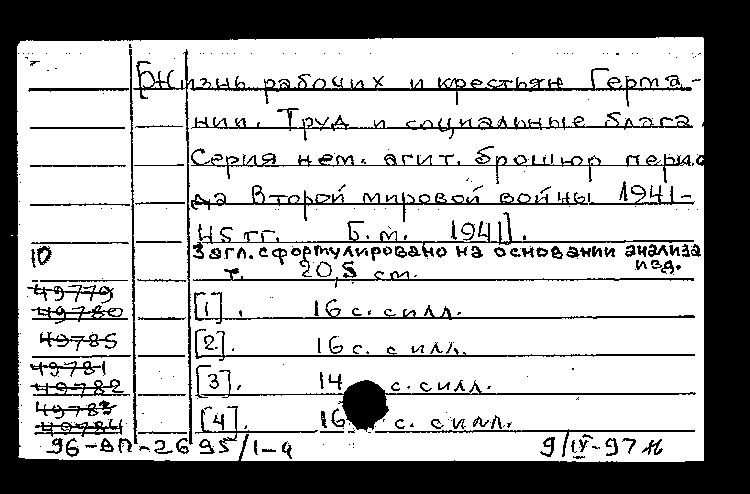 [Жизнь рабочих и крестьян Герма-
нии. Труд и социальные блага.
Серия нем. агит. брошюр перио
да Второй мировой войны 1941-
45 гг. Б.м. 1941].
10 Загл. сформулировано на основании анализа
изд.
т. 20,5 см.
49779
49780 [1]. 16 с. с илл.
49785 [2]. 16 с. с илл.
49781
49782 [3]. 14 с. с илл.
49783
49784 [4]. 16 с. с илл.
96-ВП-2695/1-4 9/IV-97